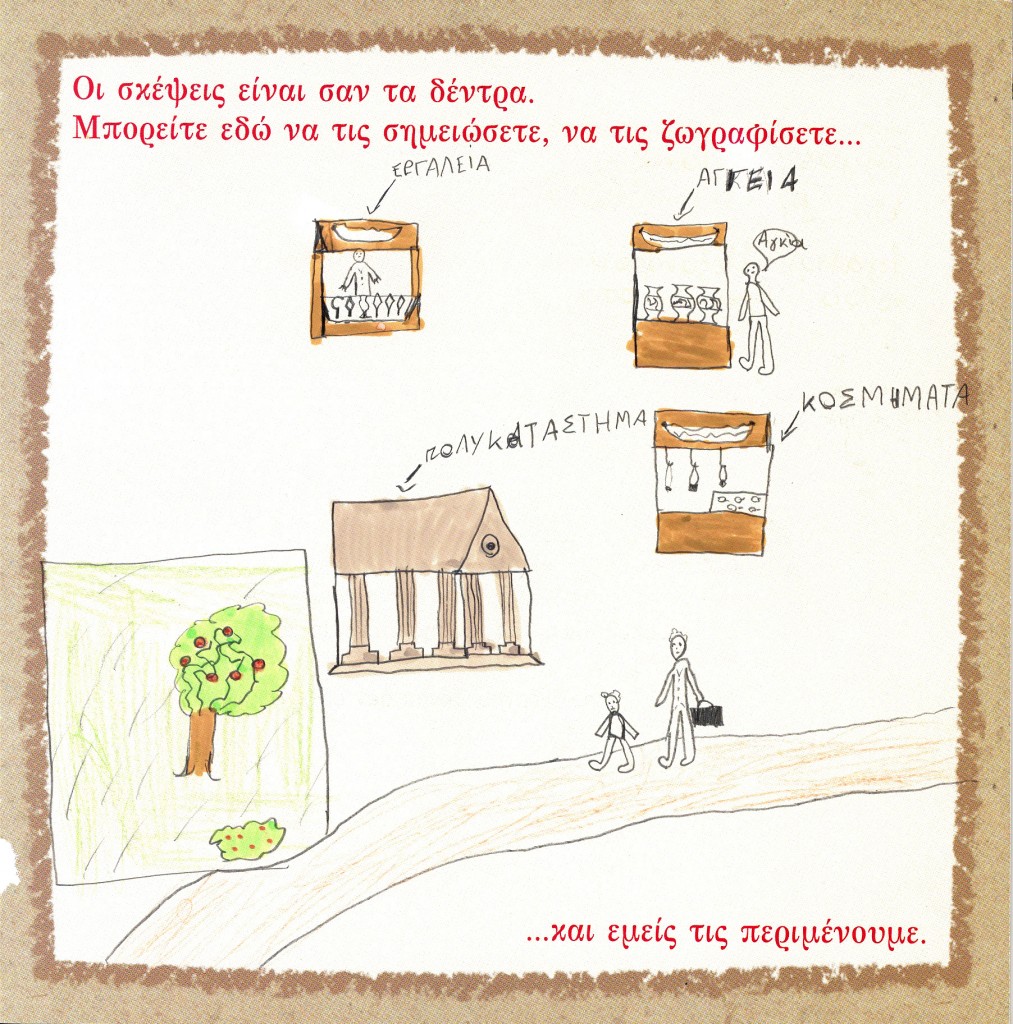 Οι σκέψεις είναι σαν τα δέντρα.
Μπορείτε εδώ να τις σημειώσετε, να τις ζωγραφίσετε...
ΕΡΓΑΛΕΙΑ
ΑΓΓΕΙΑ
Αγκία
ΚΟΣΜΗΜΑΤΑ
ΠΟΛΥΚΑΤΑΣΤΗΜΑ
...και εμείς τις περιμένουμε.